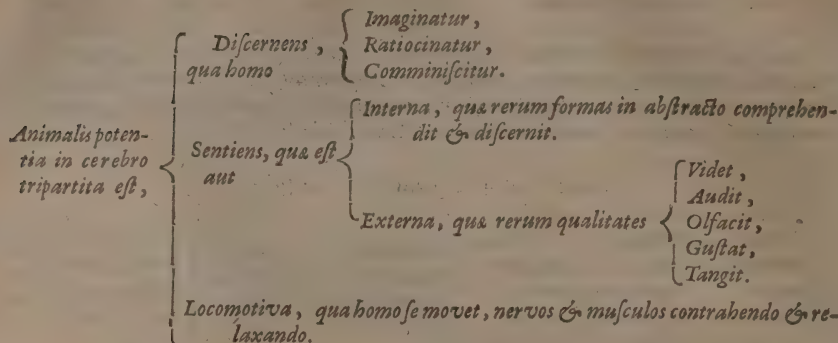 Animalis poten-
tia in cerebro
tripartita est,
Diſcernens,
qua homo
Imaginatur,
Ratiocinatur,
Comminiſcitur.
Sentiens, quæ eſt
aut
Interna, quæ rerum formas in abſtracto comprehen-
dit & diſcernit.
Externa, quæ rerum qualitates
Videt,
Audit,
Olfacit,
Guſtat,
Tangit.
Locomotiva, qua homo ſe movet, nervos & muſculos contrahendo & re-
laxando.